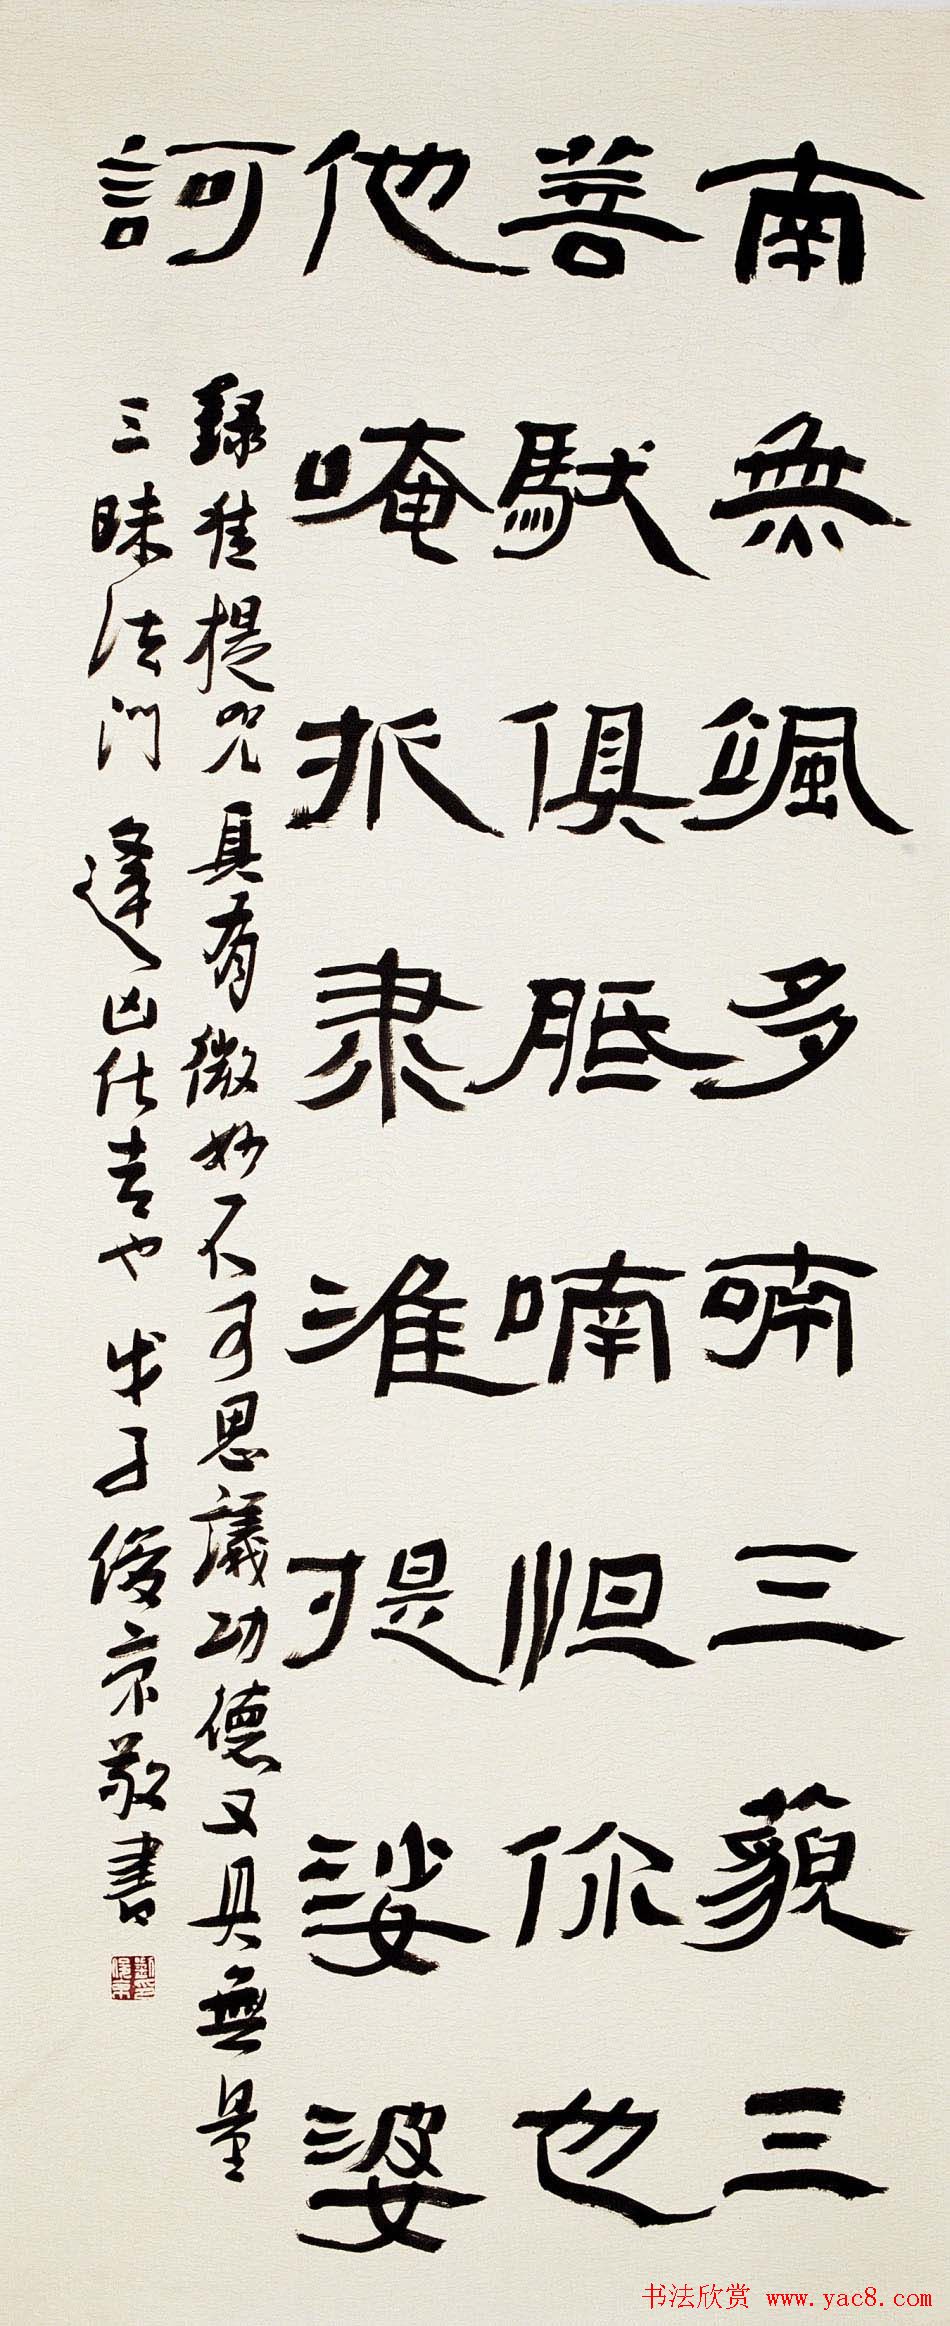 南無颯多喃三藐三
善馱俱胝喃怛你也
他唵折隶准提娑婆
訶
錄准提咒具有微妙不可思議功德又具無量
三昧法門逢凶化吉也戊子俊京敬書
书法欣赏 www.yac8.com